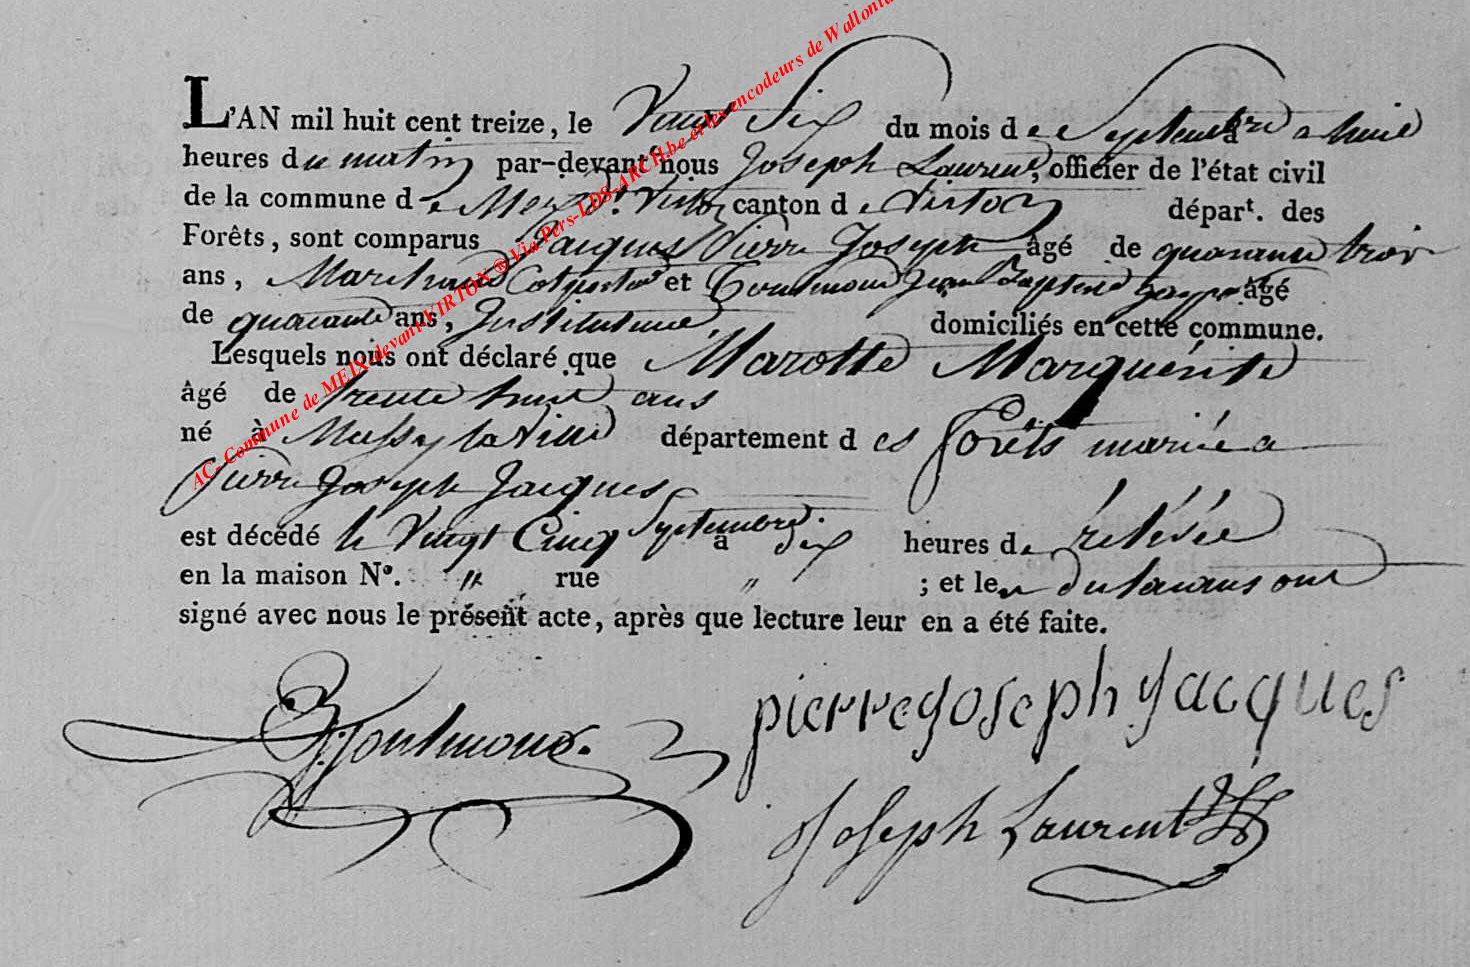 AC- Commune de MEIX-devant-VIRTON ® Via Pers-LDS-ARCH.be et les encodeurs de Wallonie
L'AN mil huit cent treize, le Vingt Six du mois de Septembre a huit
heures du matin par-devant nous Joseph Laurent, officier de l'état civil
de la commune de Meix dt Virton canton de Virton dépar<sup>t</sup>. des
Forêts, sont comparus Jacques Pierre Joseph âgé de quarante trois
ans, Marchand Colporteur et Toutmond Jean Baptiste âgé
de quarante ans, Instituteur domiciliés en cette commune.
Lesquels nous ont déclaré que Marotte Marguérite
âgé de trente huit ans
né à Mussy la Ville département des forêts mariée a
Pierre Joseph Jacques
est décédé le Vingt Cinq Septembre a dix heures de rélévée
en la maison N°. " rue " ; et les
signé avec nous le présent acte, après que lecture leur en a été faite.
pierre joseph jacques
Joseph Laurent